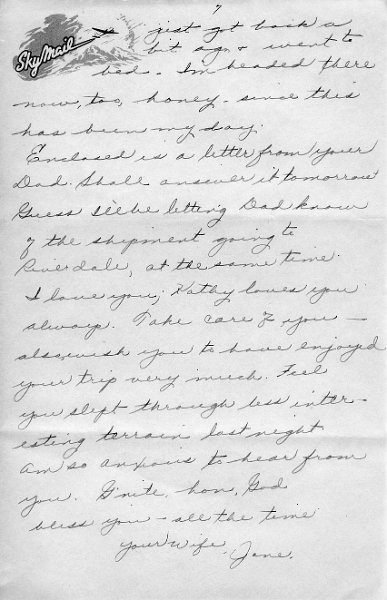 7
SkyMail
just got back a
bit ago & went to
bed. I'm headed there
now, too, honey - since this
has been my day.
Enclosed is a letter from your
Dad. Shall answer it tomorrow
Guess I'll be letting Dad know
of the shipment going to
Riverdale, at the same time.
I love you; Kathy loves you
always. Take care of you —
also wish you to have enjoyed
your trip very much. Feel
you slept through less inter-
esting terrain last night
Am so anxious to hear from
you. G'nite, hon, God
bless you - all the time
your wife
Jane.